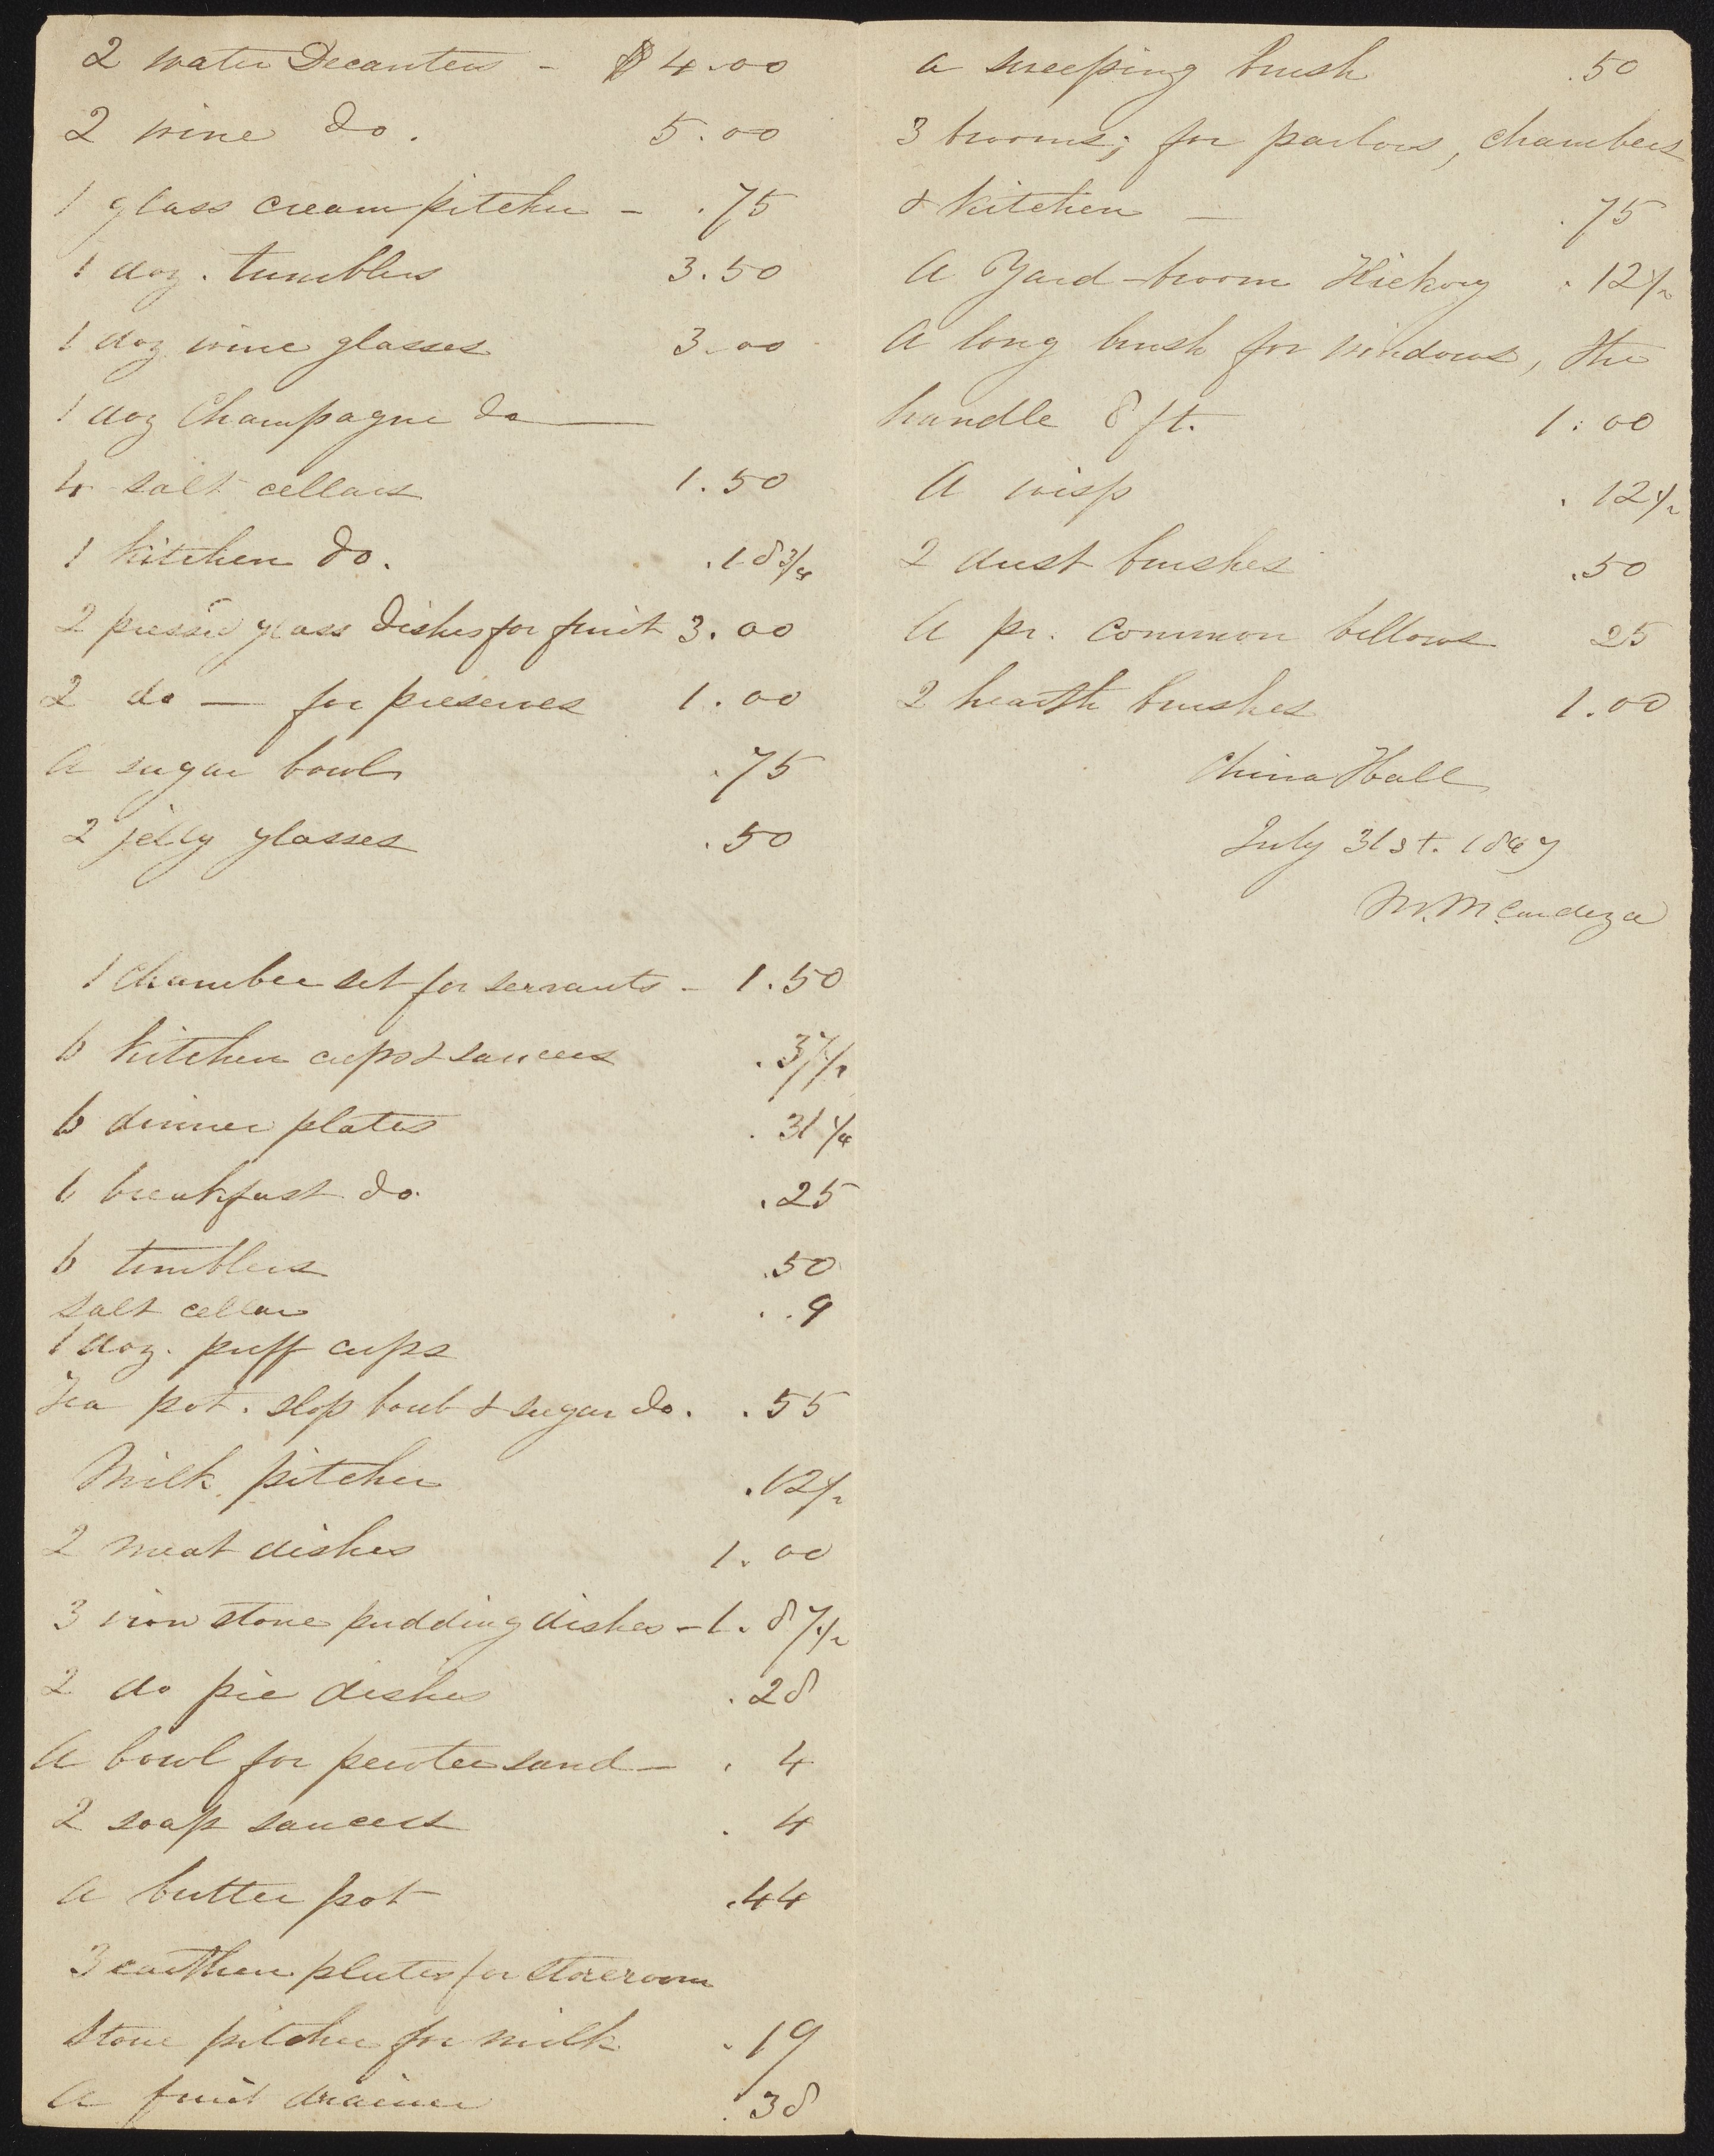 2 water Decanters - $4.00
2 wine do. 5.00
1 glass cream pitcher - .75
1 doz. tumblers 3.50
1 doz wine glasses 3.00
1 doz Champagne do —
4 salt cellars 1.50
1 kitchen do. .18 3/4
2 pressed glass dishes for fruit 3.00
2 do — for preserves 1.00
A sugar bowl .75
2 jelly glasses .50
1 chamber set for servants - 1.50
6 kitchen cups & saucers .37 1/2
6 dinner plates .31 1/4
6 breakfast do. .25
6 tumblers .50
Salt cellar .9
1 doz. puff cups
Tea pot. slop bowl & sugar do. .55
Milk pitcher .12 1/2
2 meat dishes 1.00
3 iron stone pudding dishes - 1.87 1/2
2 do pie dishes .28
A bowl for pewter sand - . 4
2 soap saucers . 4
A butter pot .44
3 earthen plates for storeroom
Stone pitcher for milk .19
A fruit drainer .38
A sweeping brush .50
3 brooms; for parlors, chambers
& kitchen — .75
A Yard-broom Hickory .12 1/2
A long brush for windows, the
handle 8 ft. 1.00
A wisp .12 1/2
2 dust brushes .50
A pr. common bellows 25
2 hearth brushes 1.00
China Hall
July 31st. 1847